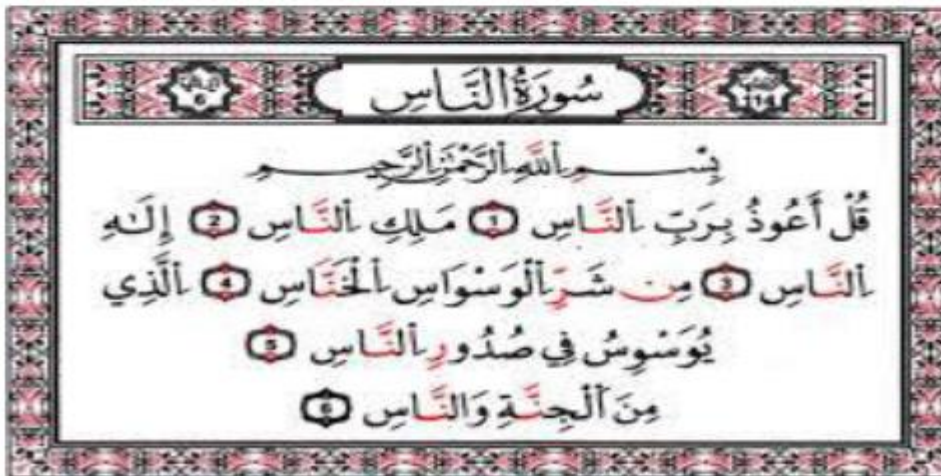 سُورَةُ النَّاسِ
114
6
بِسْمِ اللَّهِ الرَّحْمَٰنِ الرَّحِيمِ
قُلْ أَعُوذُ بِرَبِّ النَّاسِ 1 مَلِكِ النَّاسِ 2 إِلَٰهِ
النَّاسِ 3 مِن شَرِّ الْوَسْوَاسِ الْخَنَّاسِ 4 الَّذِي
يُوَسْوِسُ فِي صُدُورِ النَّاسِ 5
مِنَ الْجِنَّةِ وَالنَّاسِ 6